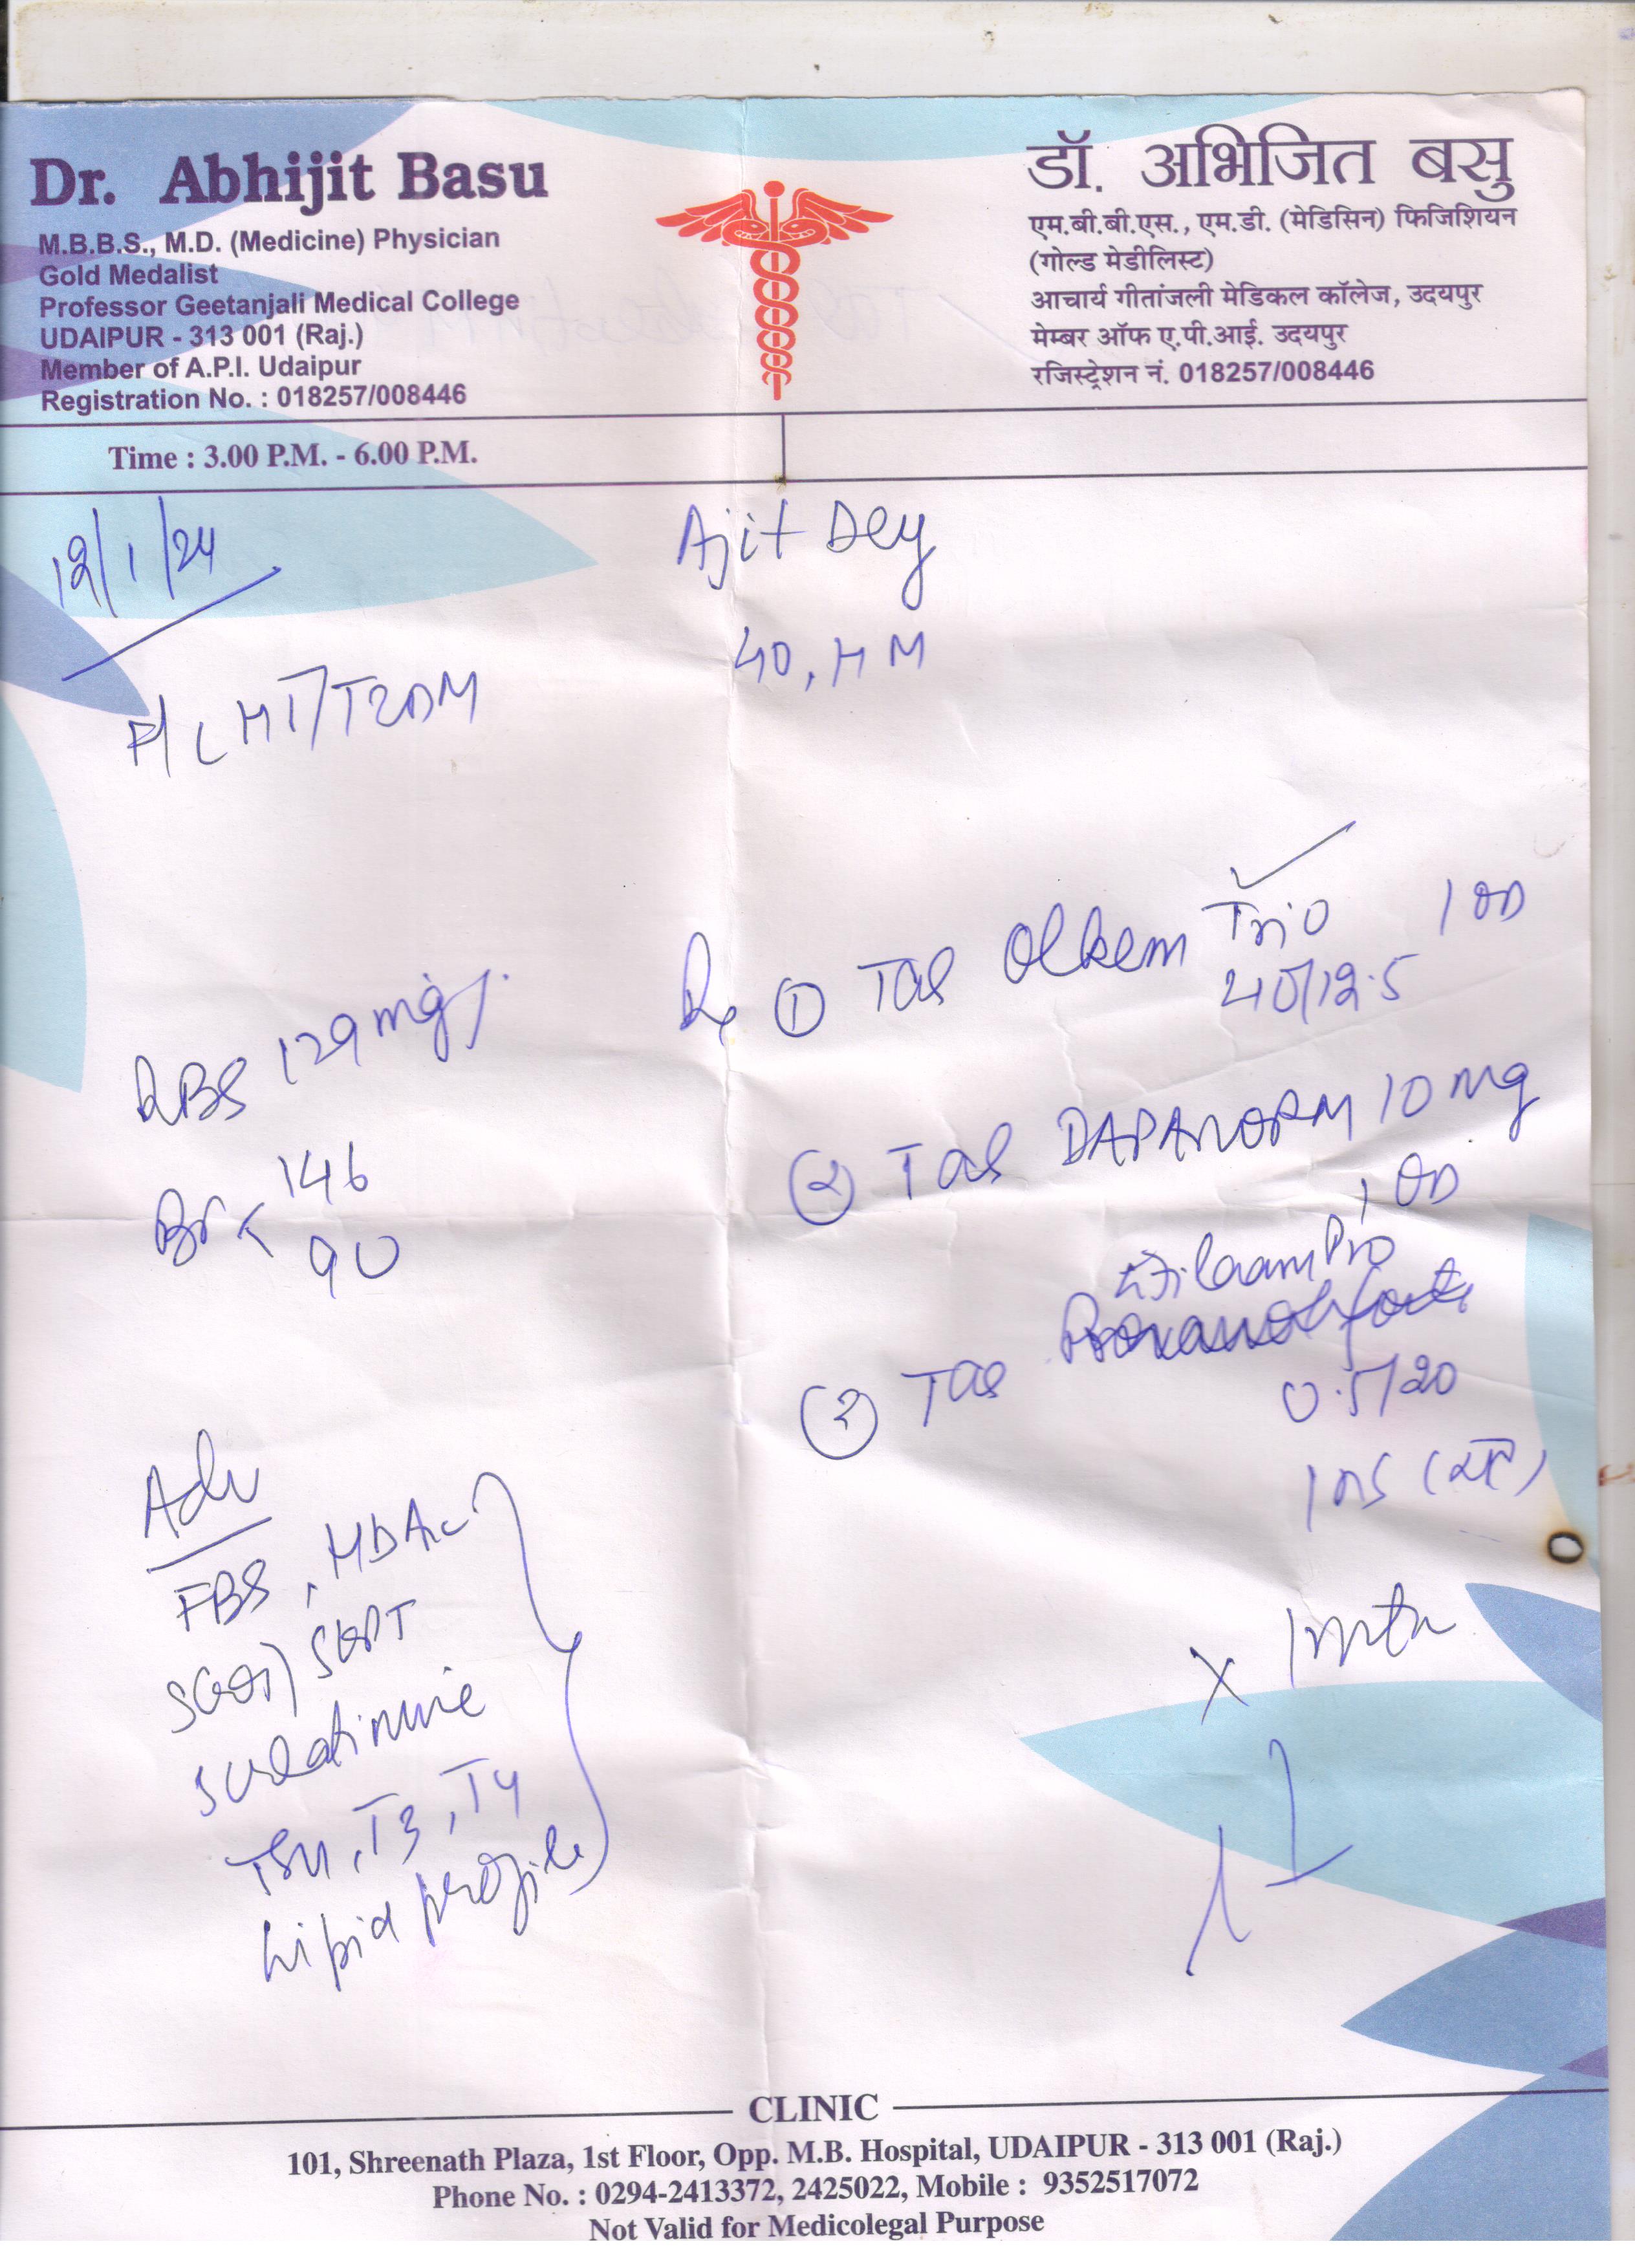 Dr. Abhijit Basu
M.B.B.S., M.D. (Medicine) Physician
Gold Medalist
Professor Geetanjali Medical College
UDAIPUR - 313 001 (Raj.)
Member of A.P.I. Udaipur
Registration No. : 018257/008446
डॉ. अभिजित बसु
एम.बी.बी.एस., एम.डी. (मेडिसिन) फिजिशियन
(गोल्ड मेडीलिस्ट)
आचार्य गीतांजली मेडिकल कॉलेज, उदयपुर
मेम्बर ऑफ ए.पी.आई. उदयपुर
रजिस्ट्रेशन नं. 018257/008446
Time : 3.00 P.M. - 6.00 P.M.
12/1/24
Ajit Dey
40, HM
HT/T2DM
RBS 129 mg%
146
90
Adv
FBS, HbA1c
SGOT/SGPT
S creatinine
TSH, T3, T4
Lipid profile
Rx ① Tab Olkem Trio 1 OD
40/12.5
② Tab DAPANORM 10 mg
1 OD
Pro
Tab forte
0.5/20
1
x 1 mth
CLINIC
101, Shreenath Plaza, 1st Floor, Opp. M.B. Hospital, UDAIPUR - 313 001 (Raj.)
Phone No. : 0294-2413372, 2425022, Mobile : 9352517072
Not Valid for Medicolegal Purpose